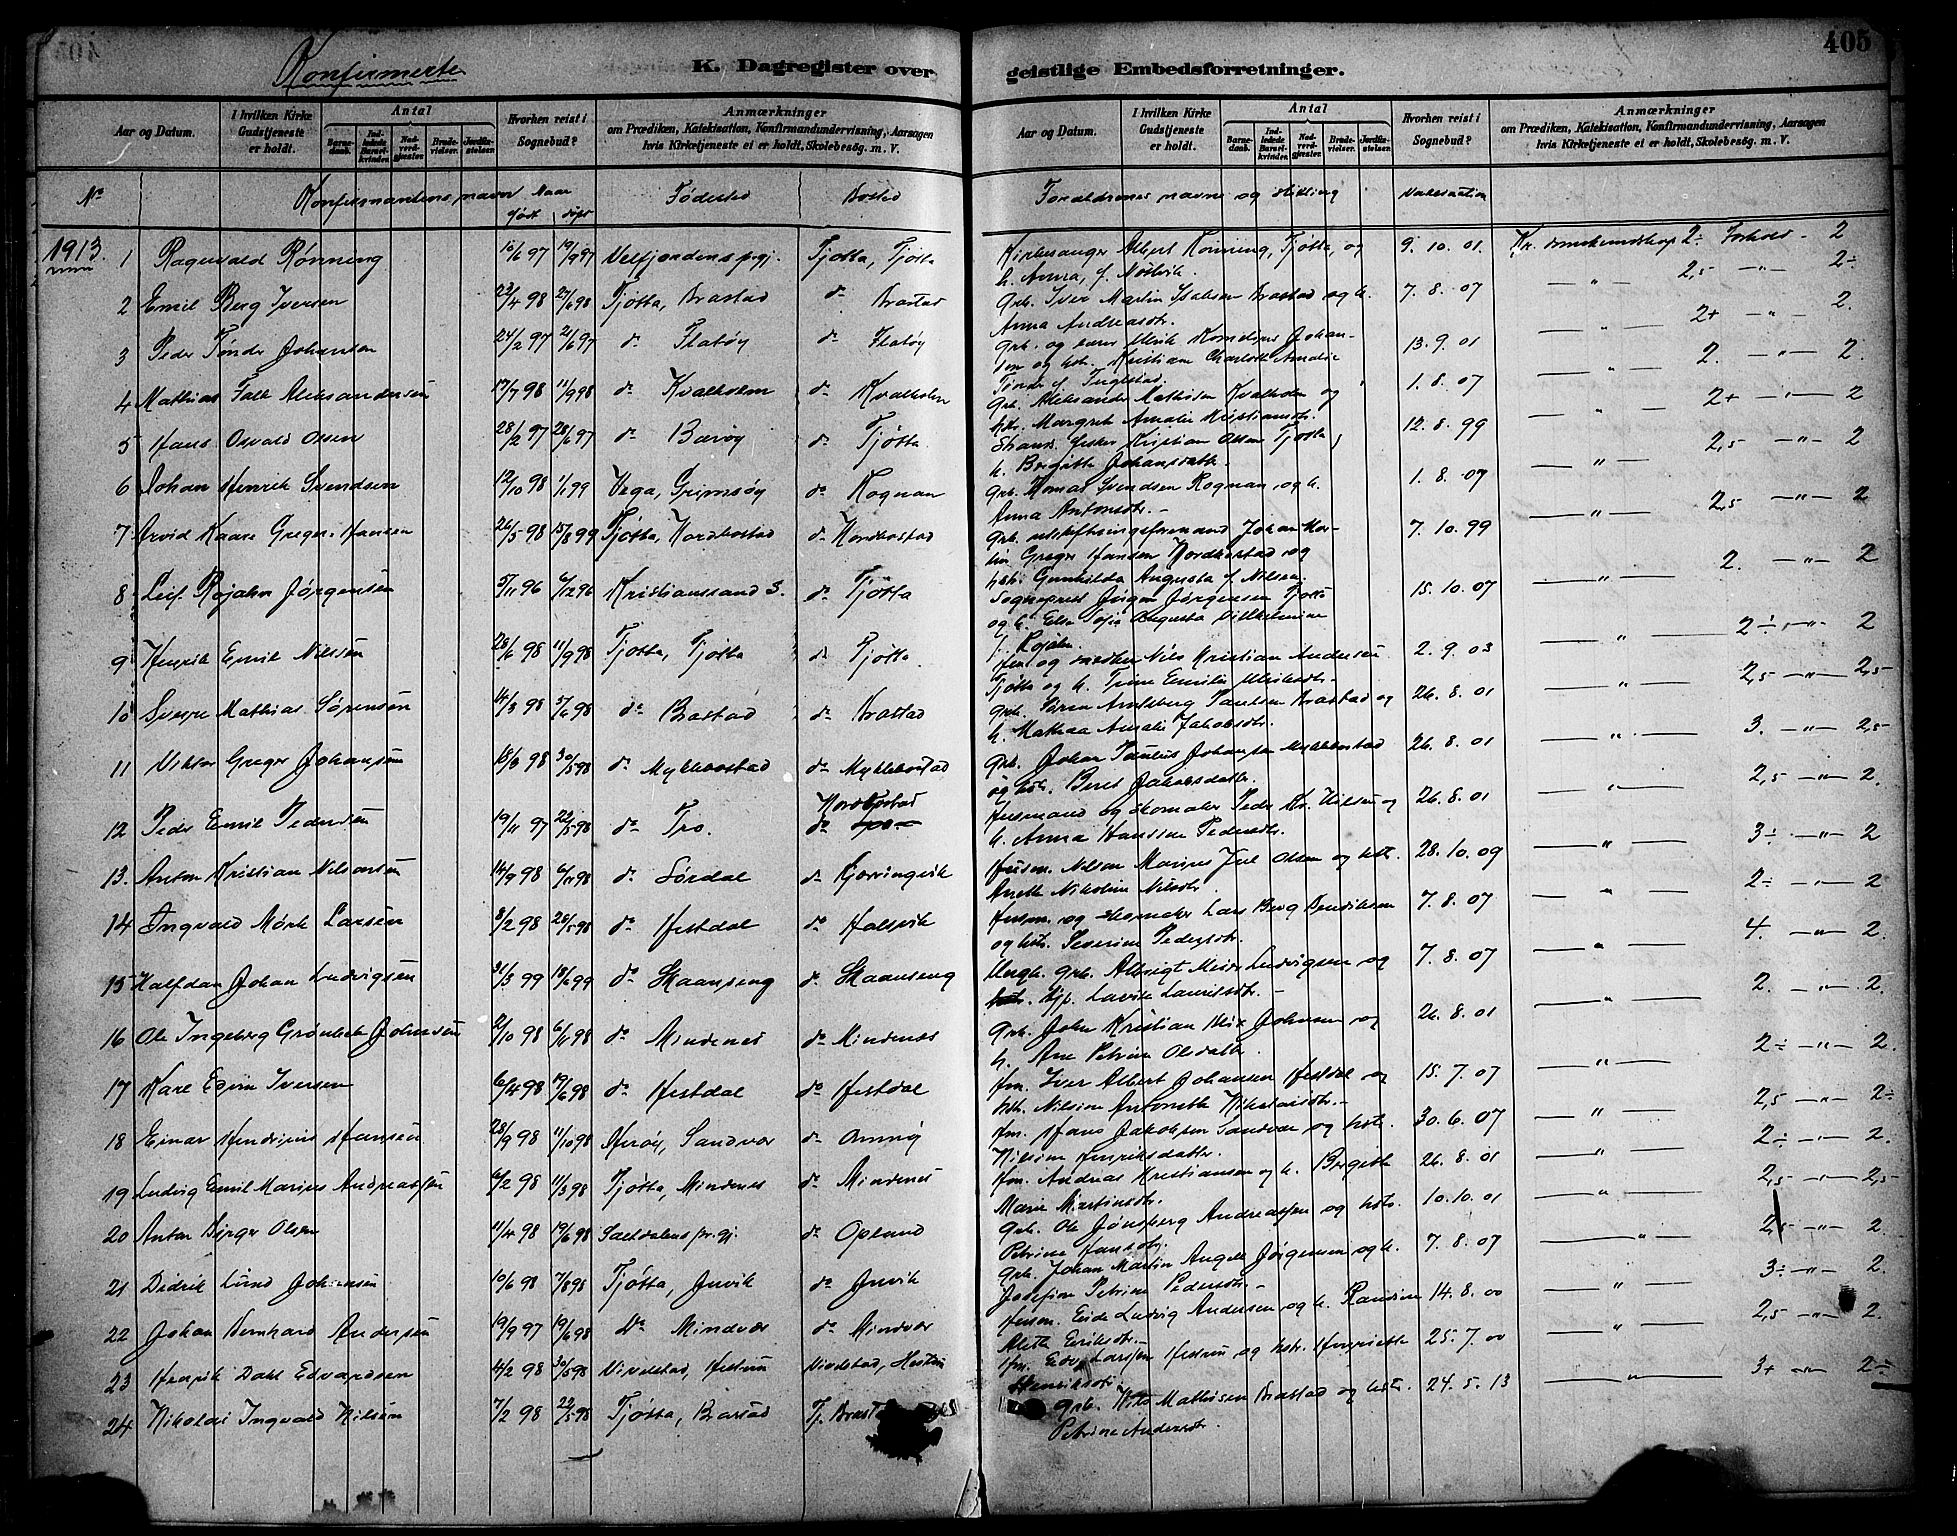 405
Konfirmerte
K. Dagregister over geistlige Embedsforretninger.
Aar og Datum. I hvilken Kirke Gudstjeneste er holdt. Antal Barnedaab. Indledede Barselkvinder. Nadverdgjester. Brudevielser. Jordfæstelser. Hvorhen reist i Sognebud? Anmærkninger om Prædiken, Katekisation, Konfirmandundervisning, Aarsagen hvis Kirketjeneste ei er holdt, Skolebesøg. m. V.
Aar og Datum. I hvilken Kirke Gudstjeneste er holdt. Antal Barnedaab. Indledede Barselkvinder. Nadverdgjester. Brudevielser. Jordfæstelser. Hvorhen reist i Sognebud? Anmærkninger om Prædiken, Katekisation, Konfirmandundervisning, Aarsagen hvis Kirketjeneste ei er holdt, Skolebesøg. m. V.
No Konfirmantens navn Naar født døpt Fødested Bosted
Forældrenes navne og stilling Vaksination
1913.
1 Ragnvald Rønning 16/6 97 19/9 97 Velfjordens pgj. Tjøtta, Tjøtta
2 Emil Berg Iversen 22/4 98 21/6 98 Tjøtta, Brastad do Brastad
3 Peder Tønder Johansen 24/2 97 21/6 97 do Flatøy do Flatøy
4 Mathias Falk Aleksandersen 17/7 98 11/9 98 do Kvalholm do Kvalholm
5 Hans Osvald Olsen 28/2 97 28/6 97 do Barøy do Tjøtta
6 Johan Henrik Svendsen 12/10 98 1/1 99 Vega, Grimsøy do Rognan
7 Arvid Kaare Greger Hansen 26/5 98 15/8 99 Tjøtta, Nordbostad do Nordbostad
8 Leif Rojahn Jørgensen 5/11 96 6/12 96 Kristianssand S. do Tjøtta
9 Henrik Emil Nilsen 28/6 98 11/9 98 Tjøtta, Tjøtta do Tjøtta
10 Sverre Mathias Sørensen 14/3 98 5/6 98 do Brastad do Brastad
11 Viktor Greger Johansen 18/3 98 30/5 98 do Myklebostad do Myklebostad
12 Peder Emil Pedersen 19/11 97 22/5 98 do Tro. do Nordbostad
13. Anton Kristian Nilsen 14/9 98 6/11 98 do Sørdal do Kjørringvik
14 Ingvald Mørk Larsen 8/2 98 28/5 98 do Hestdal do Halsvik
15 Halfdan Johan Ludvigsen 31/3 99 18/6 99 do Skaanseng do Skaanseng
16 Ole Ingeberg Grønbech Johnsen 2/10 98 6/11 98 do Mindenes do Mindenes
17 Karl Egin Iversen 6/4 98 19/6 98 do Hestdal do Hestdal
18 Einar Hendrius Hansen 28/9 98 11/10 98 Herøy, Sandvær do
19 Ludvig Emil Marius Andreassen 6/2 98 11/3 98 Tjøtta, Mindenes do Mindenes
20 Anton Birger Olsen 11/4 98 19/6 98 Saltdalens pr.gj. do Opland
21 Didrik Lund Johansen 10/6 98 7/8 98 Tjøtta, Invik do Invik
22 Johan Bernhard Andersen 19/9 97 19/6 98 Do Mindvær do Mindvær
23 Henrik Dahl Edvardsen 4/2 98 30/5 98 Vivelstad, Hestun Vivelstad, Hestun
24 Nikolai Ingvald Nilsen 7/2 98 22/5 98 Tjøtta, Brastad Tj. Brasta
Kirkesanger Albert Rønning, Tjøtta, og 9. 10. 01. Kr. domskundskap 2÷ Forhold 2
h. Anna, f. Nøstvik. 2,5 2÷
Grb. Iver Martin Isaksen Brastad og h. 7. 8. 07
Anna Andreasdtr. 2+ 2.
grb. og lærer Ulrik Kornelius Johan- 13. 9. 01
sen og hstr. Kristiane Charlotte Amalie 2. 2.
Tønder f. Inglstad.
grb. Aleksander Mathisen Kvalholm og 1. 8. 07
hstr. Margret Amalie Kristiansdtr. 2+ 2
Strands. fisker Kristian Olsen Tjøtta, 12. 8. 99
h. Brigitte Johansdatter. 2,5 2
grb. Tomas Svendsen Rognan, og h. 1. 8. 07
Anna Antonsdtr. 2,5 2
grb. utskiftningsformand Johan Mar- 7. 10. 99
tin Greger Hansen Nordbostad og
hstr. Gunhilda Augusta f. Nilsen. 2. 2
Sogneprest Jørgen Jørgensen Tjøtta 15. 10. 07
og h. Elise Sofie Augusta Vilhelmine
f. Rojahn. 2÷ 2
Nils Kristian Andersen 2. 9. 03
Tjøtta og h. Trine Emilie 2,5 2,5
grb. Søren Arntsberg Paulsen Brastad og 26. 8. 01
h. Mathea Amalie Jakobsdtr. 3. 2,5
grb. Johan Paulus Johansen Myklebostad 26. 8. 01
og hstr. Beret Jakobsdatter. 2,5 2.
Husmand og skomaker Peder Kr. Nilsen og 26. 8. 01
h. Anna Hansine Pedersdtr. 3÷ 2
Husm. Nilsen Marius Juel Olsen og hstr. 28. 10. 09
Anette Nikoline Nilsdtr. 2÷ 2
Husm. og skomaker Lars Berg Bendiksen 7. 8. 07
og hstr. Severine Pedersdtr. 4. 2.
Ungk. grb. Albrigt Meier Ludvigsen og 7. 8. 07
Lavite Lauritsdtr. 2. 2.
grb. John Kristian Johnsen og 26. 8. 01
h. Ane Petrine Olsdatter. 2÷ 2.
fm. Iver Albert Johansen Hestdal og 15. 7. 07
hstr. Nilsine Antonette Nikolaisdtr. 2,5 2÷
fm. Hans Jakobsen Sandvær og hstr. 30. 6. 07
Nilsine Henriksdatter. 2÷ 2.
fm. Andreas Kristiansen og h. Bergitte 26. 8. 01
Marie Martinsdtr. 2,5 2,5
grb. Ole Jønsberg Andreassen og hstr. 10. 10. 01
Petrine Hansdtr. 2,5 2
grb. Johan Martin Angell Jørgensen og h. 7. 8. 07
Josefine Petrine Pedersdtr. 3÷ 2.
Husm. Eide Ludvig Andersen og h. Randine 14. 8. 00
Aletta Eriksdtr. 2,5 2.
fm. Edv. Larssen Hestun og hstr. Henriette 25. 7. 00
Henriksdtr. 3+ 2÷
Grb. Nils Mathisen Brastad og hstr. 24. 5. 13
Petrine Andersdtr.